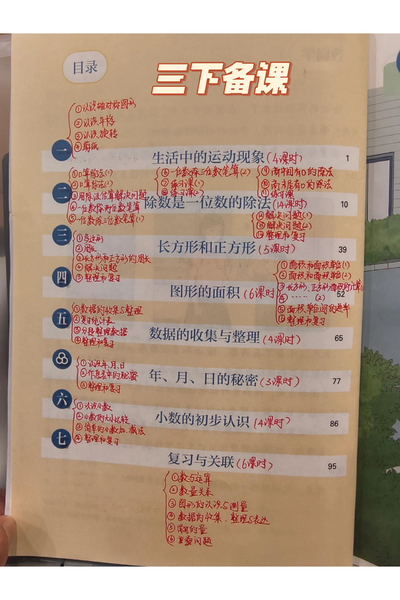 目录
三下备课
①认识轴对称图形
②认识平移
③认识旋转
④剪纸
一
生活中的运动现象(4课时)
1
①口算除法(1)
②口算除法(2)
③用除法估算解决问题
④一位数除两位数笔算
⑤一位数除三位数笔算(1)
⑥一位数除三位数笔算(2)
⑦练习课(1)
⑧练习课(2)
⑨商中间有0的除法
⑩商末尾有0的除法
二
除数是一位数的除法(14课时)
10
解决问题(1)
解决问题(2)
整理和复习
三
②周长
③长方形和正方形的周长
④解决问题
⑤整理和复习
长方形和正方形(5课时)
39
①面积和面积单位(1)
②面积和面积单位(2)
③长方形、正方形面积的计算
④……(2)
⑤面积单位间的进率
⑥整理和复习
四
图形的面积(6课时)
52
五
①数据的收集与整理
②复式统计表
③分段整理数据
④整理和复习
数据的收集与整理(4课时)
65
①认识年、月、日
③整理和复习
年、月、日的秘密(3课时)
77
六
①认识小数
②小数的大小比较
③简单的小数加、减法
④整理和复习
小数的初步认识(4课时)
86
七
复习与关联(6课时)
95
①数与运算
②数量关系
③图形的认识与测量
④数据的收集、整理与表达
⑤常见的量